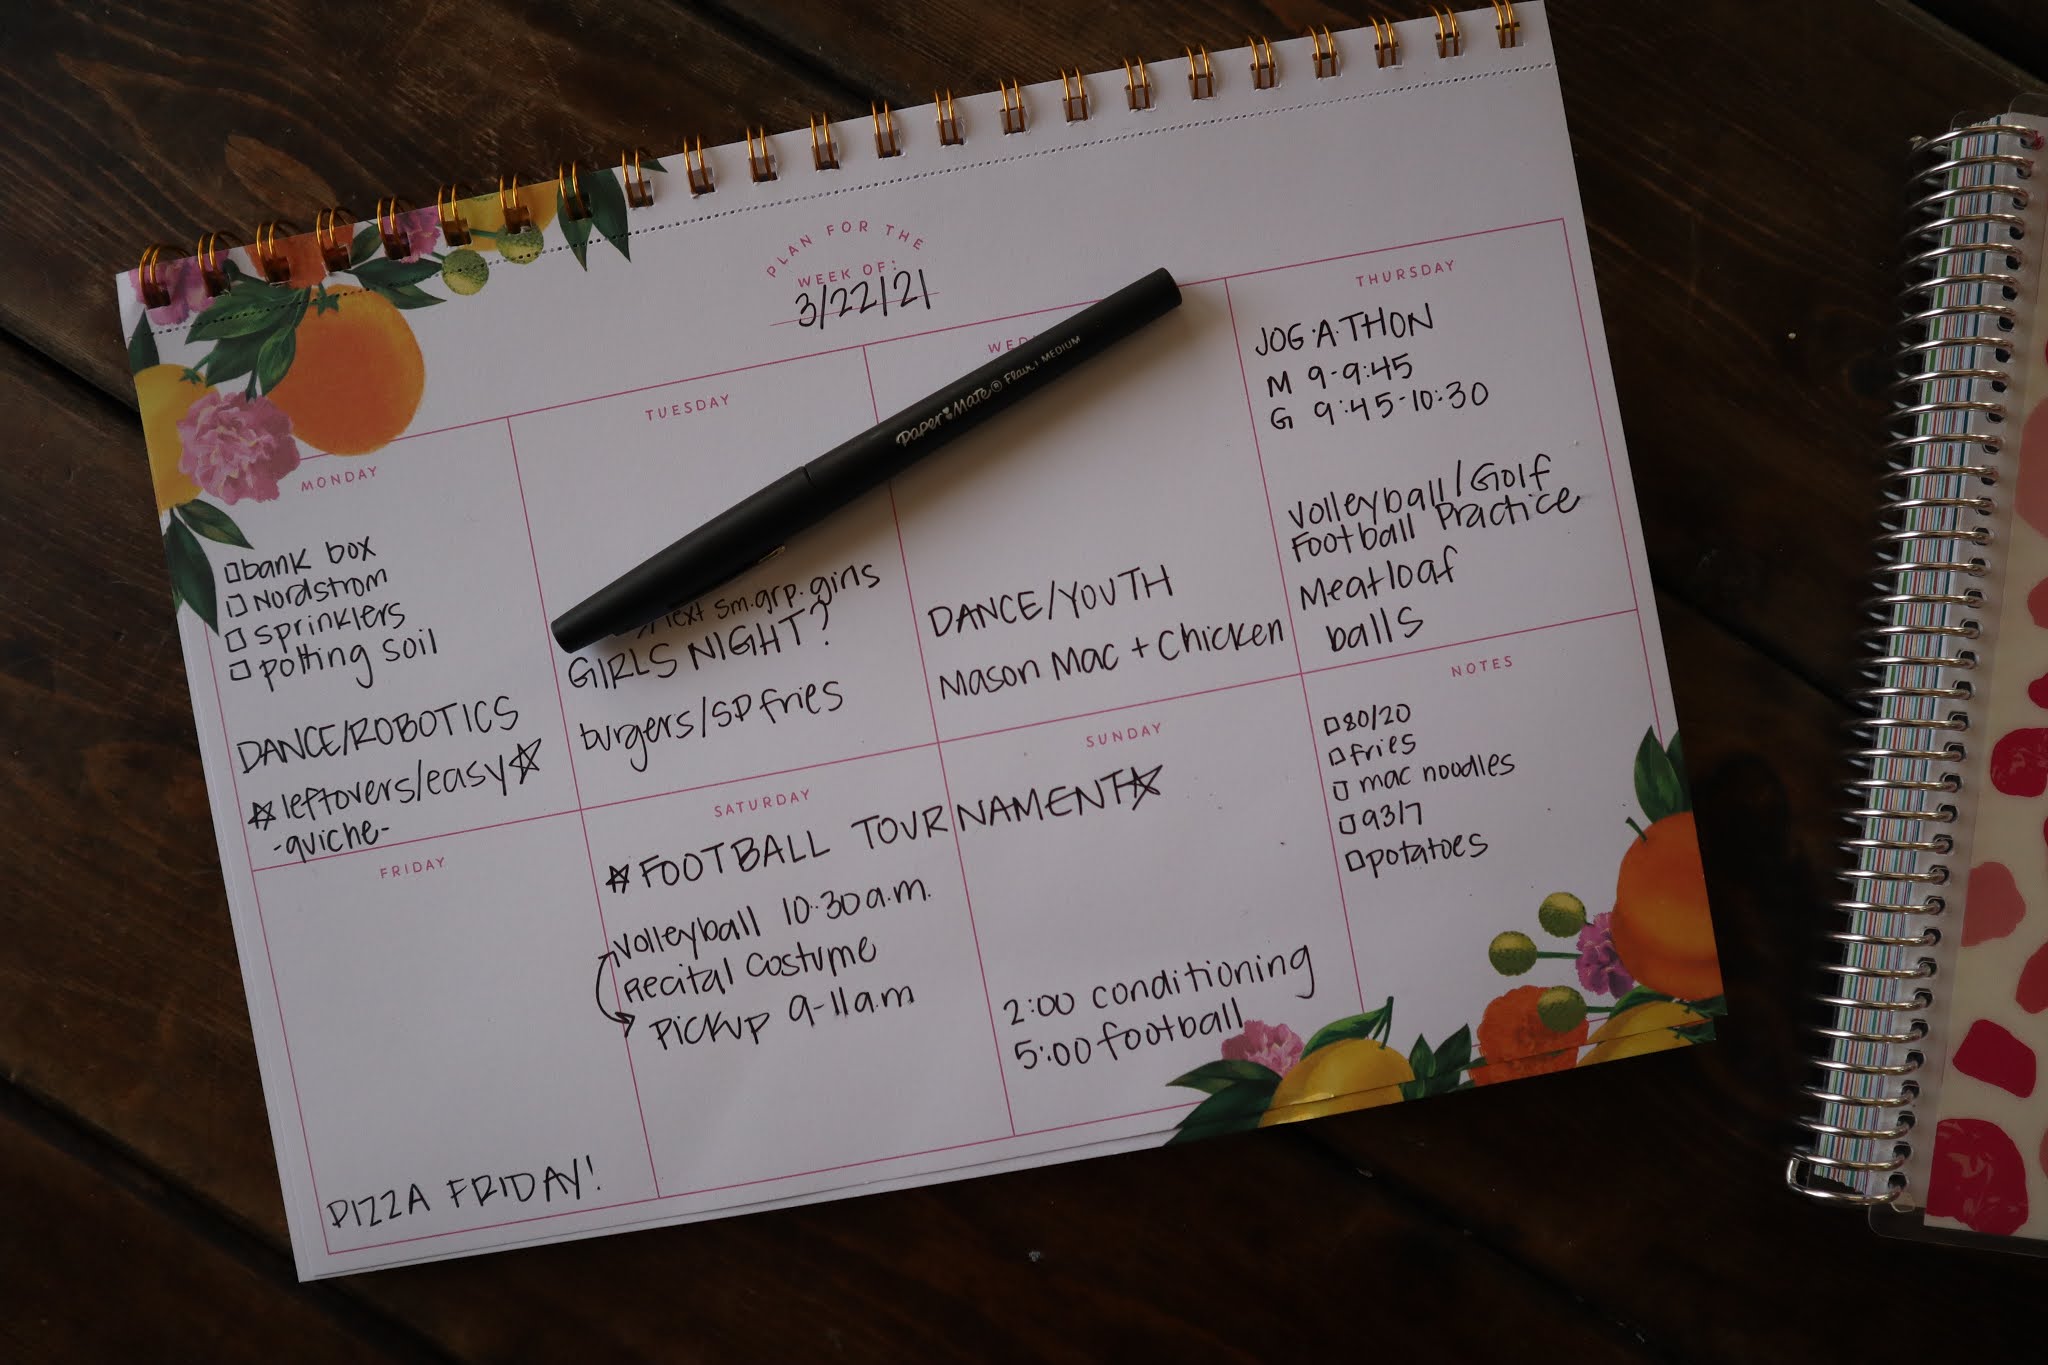 PLAN FOR THE
WEEK OF:
3/22/21
MONDAY
bank box
Nordstrom
sprinklers
potting soil
DANCE/ROBOTICS
leftovers/easy
-quiche-
TUESDAY
text sm.grp.girls
GIRLS NIGHT?
burgers/SP fries
WED
DANCE/YOUTH
Mason Mac + Chicken
Paper Mate® Flair | MEDIUM
THURSDAY
JOG·A·THON
M 9-9:45
G 9:45-10:30
Volleyball/Golf
Football Practice
Meatloaf
balls
FRIDAY
PIZZA FRIDAY!
SATURDAY
FOOTBALL TOURNAMENT
Volleyball 10:30a.m.
Recital Costume
Pickup 9-11a.m
SUNDAY
2:00 conditioning
5:00 football
NOTES
80/20
fries
mac noodles
93/7
potatoes